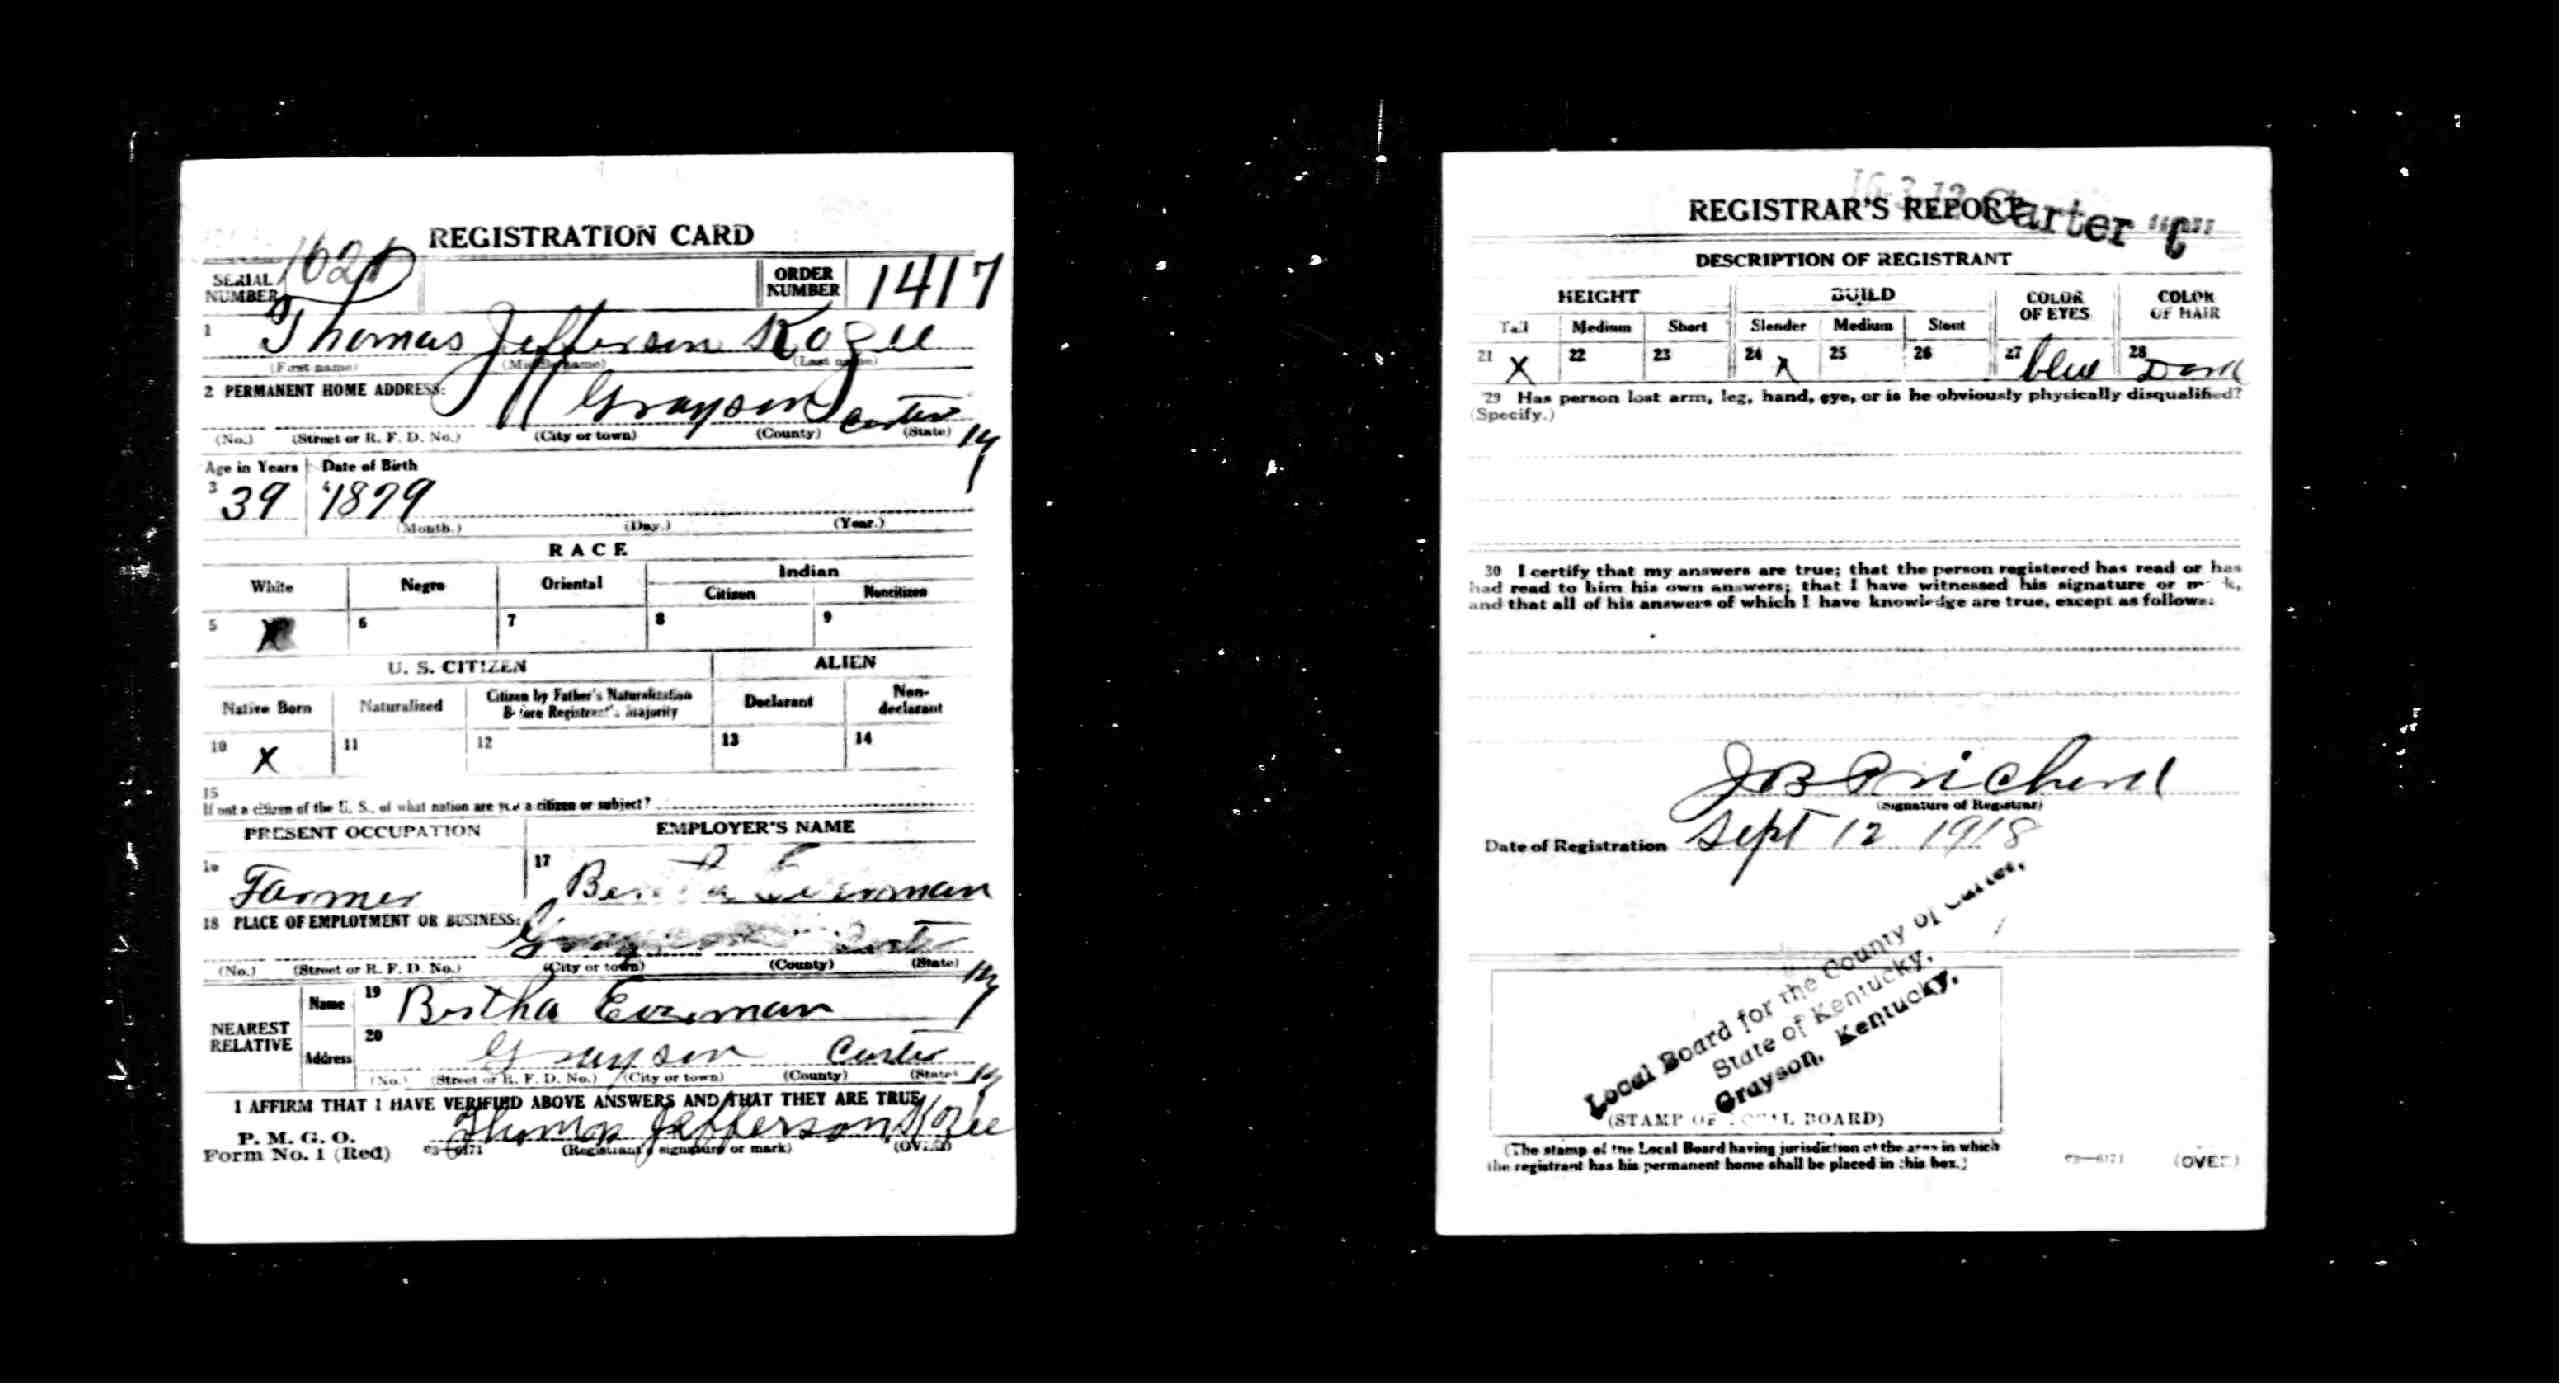 REGISTRATION CARD
SERIAL NUMBER
ORDER NUMBER 1417
1 Thomas Jefferson Kozee
(First name) (Middle name) (Last name)
2 PERMANENT HOME ADDRESS:
Grayson Carter Ky
(No.) (Street or R. F. D. No.) (City or town) (County) (State)
Age in Years Date of Birth
3 39 4 1879
(Month.) (Day.) (Year.)
RACE
White Negro Oriental Indian
Citizen Noncitizen
5 X 6 7 8 9
U. S. CITIZEN ALIEN
Native Born Naturalized Citizen by Father's Naturalization Before Registrant's Majority Declarant Non-declarant
10 X 11 12 13 14
15
If not a citizen of the U. S., of what nation are you a citizen or subject?
PRESENT OCCUPATION EMPLOYER'S NAME
16 Farmer 17
18 PLACE OF EMPLOYMENT OR BUSINESS:
Grayson Carter Ky
(No.) (Street or R. F. D. No.) (City or town) (County) (State)
NEAREST RELATIVE
Name 19 Bertha
Address 20 Grayson Carter Ky
(No.) (Street or R. F. D. No.) (City or town) (County) (State)
I AFFIRM THAT I HAVE VERIFIED ABOVE ANSWERS AND THAT THEY ARE TRUE
P. M. G. O.
Form No. 1 (Red)
Thomas Jefferson Kozee
03—6171 (Registrant's signature or mark) (OVER)
16-3-12 Carter "C"
REGISTRAR'S REPORT
DESCRIPTION OF REGISTRANT
HEIGHT BUILD COLOR OF EYES COLOR OF HAIR
Tall Medium Short Slender Medium Stout
21 X 22 23 24 X 25 26 27 blue 28 Dark
29 Has person lost arm, leg, hand, eye, or is he obviously physically disqualified?
(Specify.)
30 I certify that my answers are true; that the person registered has read or has
had read to him his own answers; that I have witnessed his signature or mark,
and that all of his answers of which I have knowledge are true, except as follows:
J B Prichard
(Signature of Registrar)
Date of Registration Sept 12 1918
Local Board for the County of Carter,
State of Kentucky,
Grayson, Kentucky,
(STAMP OF LOCAL BOARD)
(The stamp of the Local Board having jurisdiction of the area in which
the registrant has his permanent home shall be placed in this box.)
03—6171 (OVER)